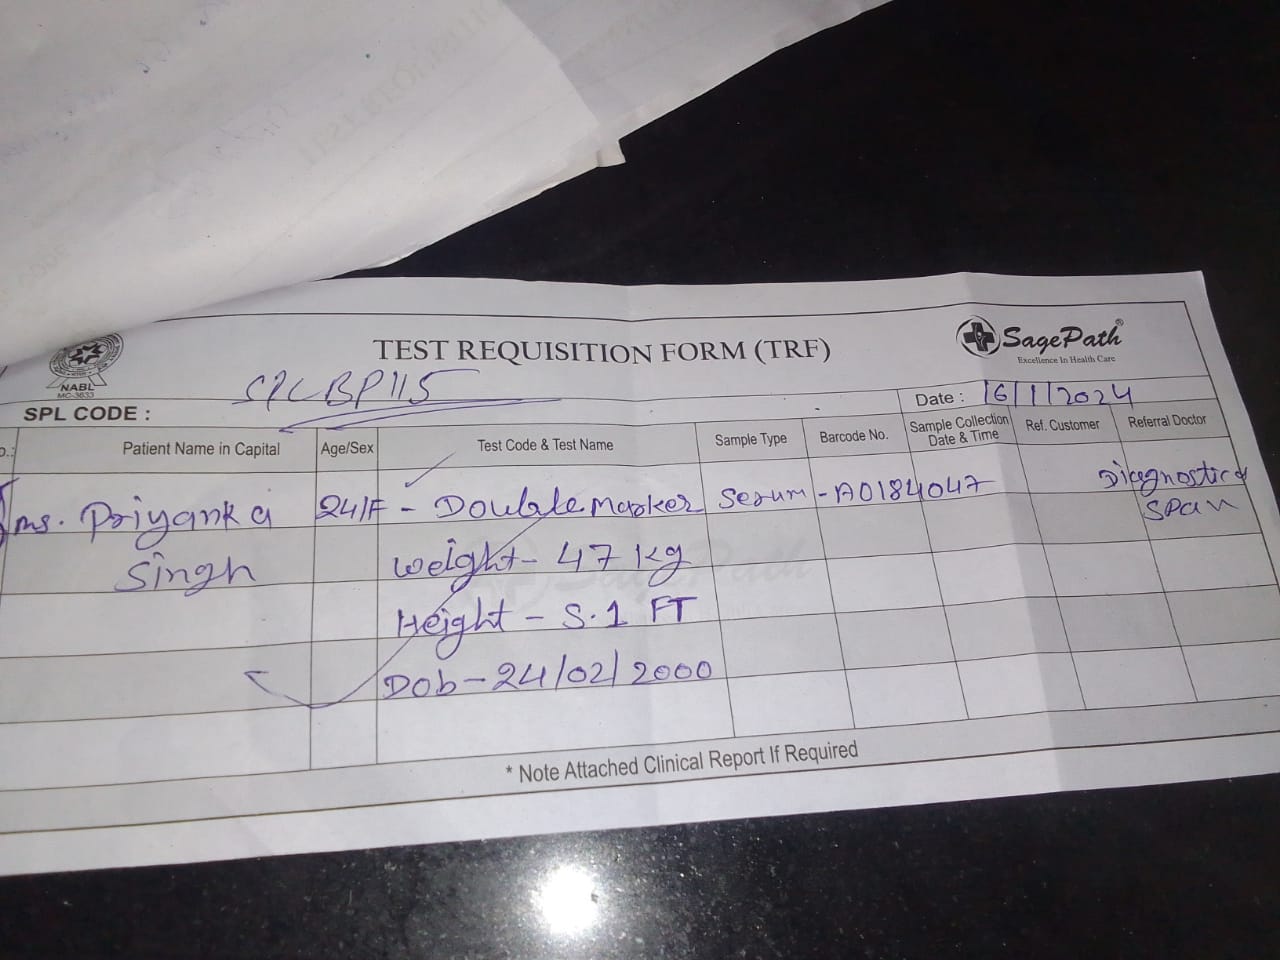 NABL
MC-3633
TEST REQUISITION FORM (TRF)
SagePath®
Excellence In Health Care
SPL CODE : SPLBP115
Date : 16/1/2024
Patient Name in Capital Age/Sex Test Code & Test Name Sample Type Barcode No. Sample Collection Date & Time Ref. Customer Referral Doctor
ms. Priyanka 24/F - Double Marker Serum - A0184047 Diagnostics
Singh span
Weight - 47 kg
Height - 5.1 FT
Dob - 24/02/2000
* Note Attached Clinical Report If Required